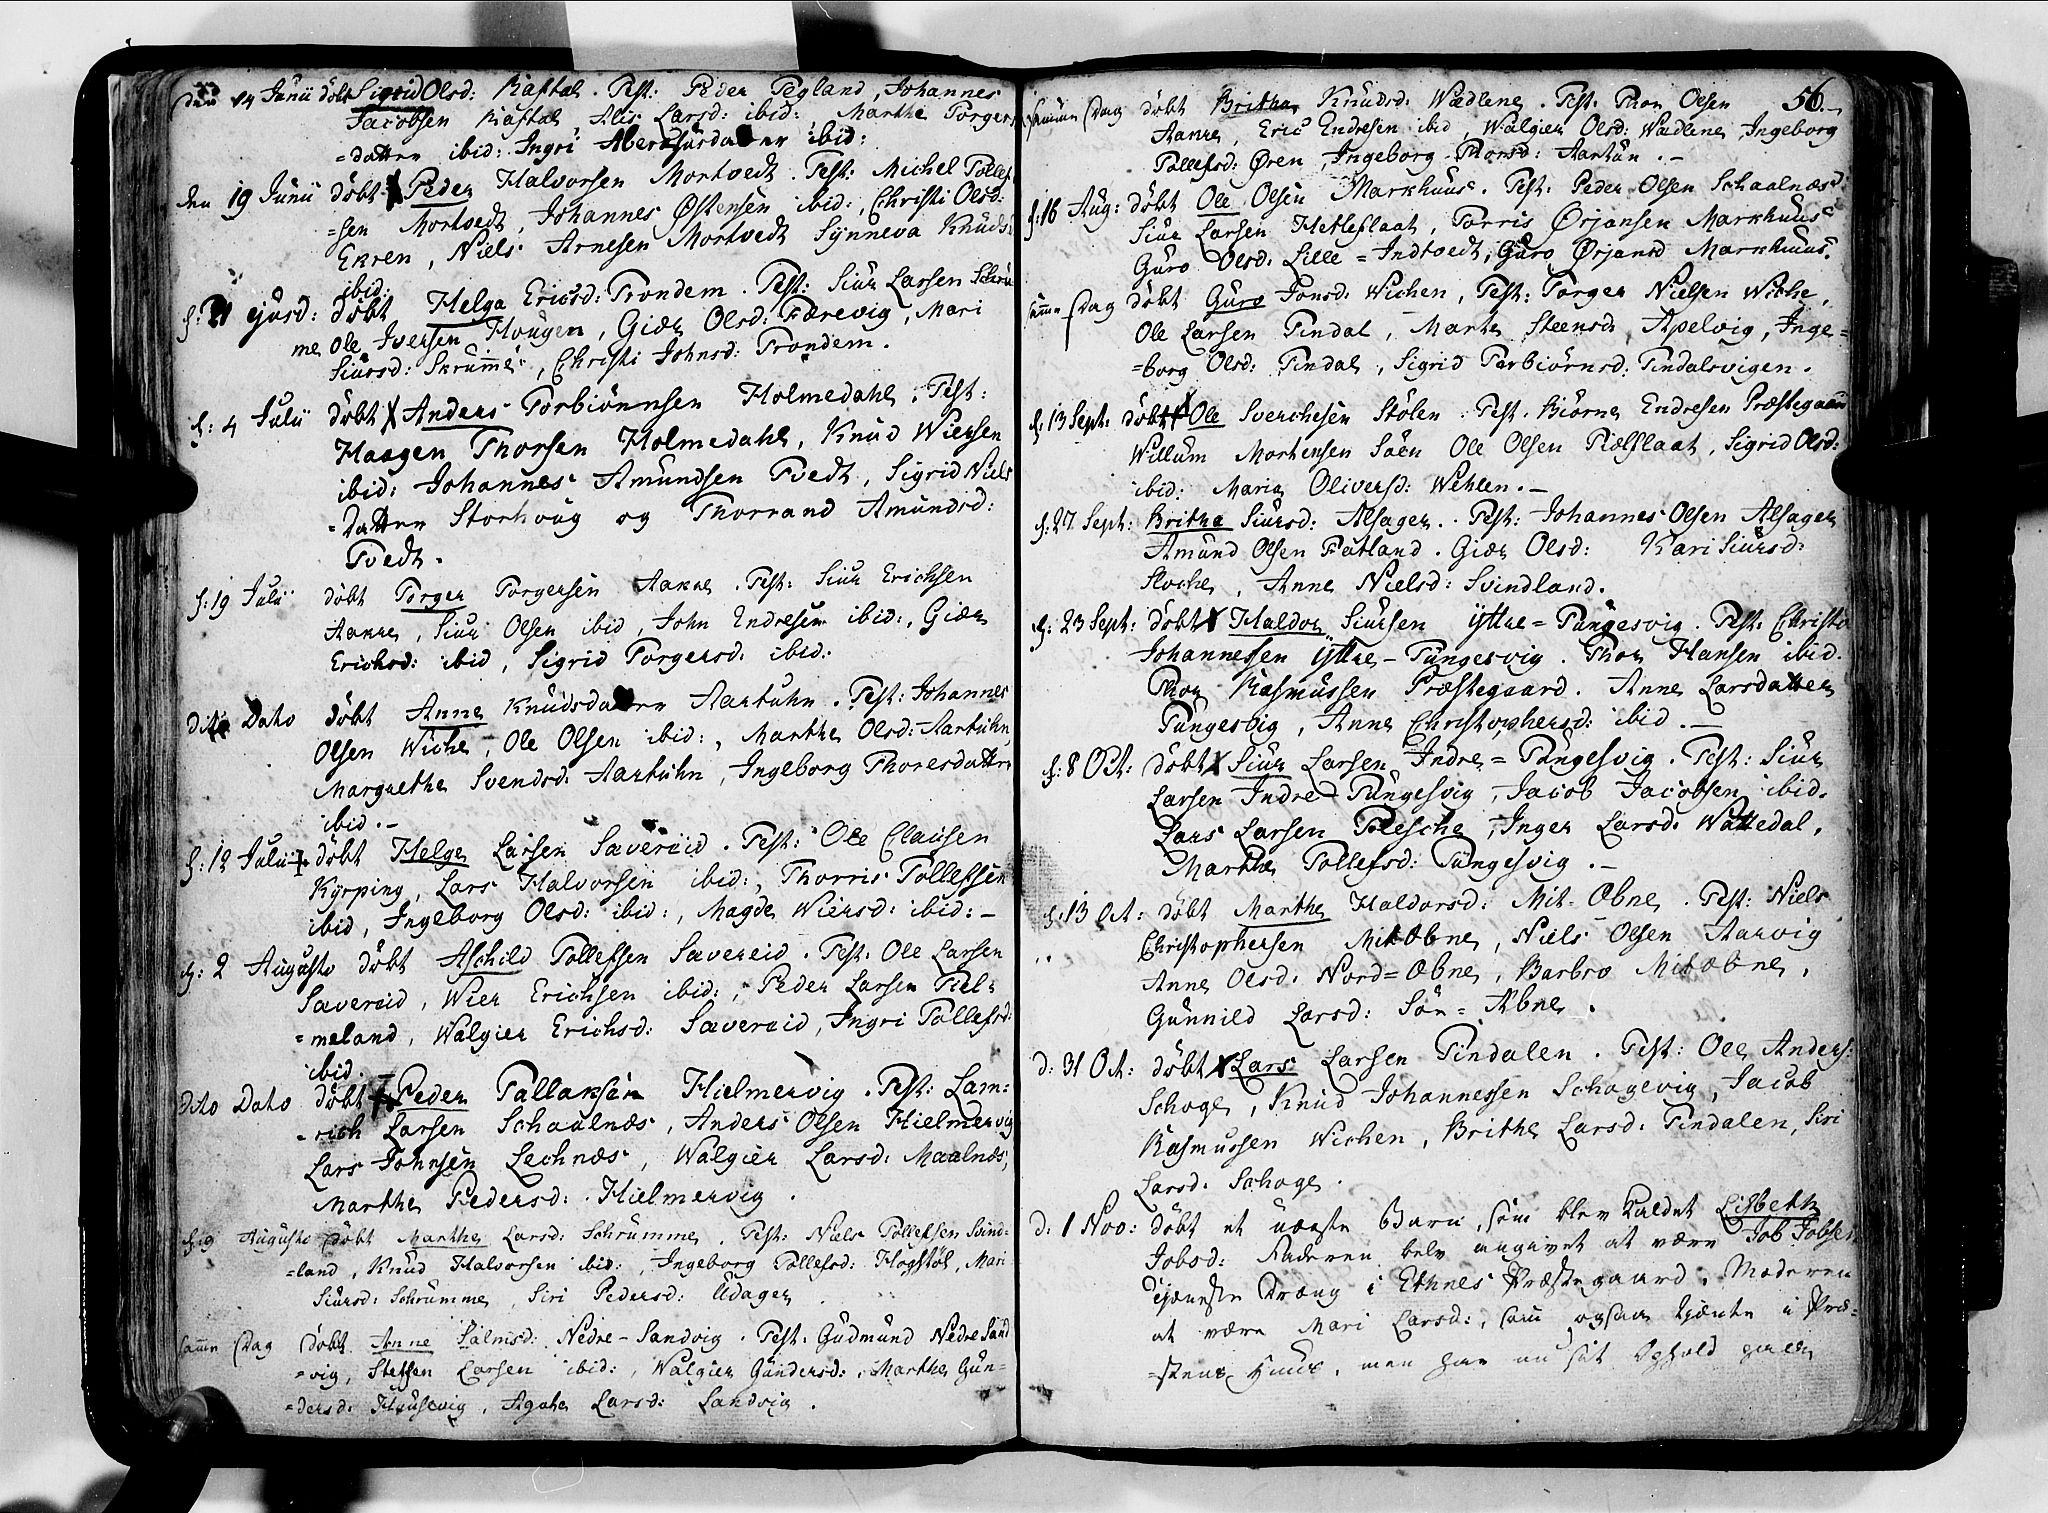 den 14 Junii döbt Sigrid Olsd: Raftal. Test: Peder Tegland, Johannes
Jacobsen Raftal Alis Larsd: ibid: Marthe Torgers
=datter ibid: Ingri ibid:
den 19 Junii döbt Peder Halvorsen Mortvedt. Test: Michel Tollef
=sen Mortvedt, Johannes Østensen ibid:, Christi Olsd:
Ekren, Niels Arnesen Mortvedt Synneva Knuds
ibid:
d: 21 ejusd: döbt Helga Ericsd: Trondem. Test: Siur Larsen Skrum
me Ole Iversen Hougen, Giær Olsd: Færevig, Mari
Siursd: Skrumme, Christi Johnsd: Trondem.
d: 4 Julii döbt Anders Torbiörnsen Holmedahl. Test:
Haagen Thorsen Holmedahl, Knud Wiersen
ibid: Johannes Amundsen Tvedt, Sigrid Niels
=datter Storhoug og Thorrand Amundsd:
Tvedt.
d: 19 Julii döbt Torger Torgersen Aakre. Test: Siur Erichsen
Aakre, Siur Olsen ibid, John Endresen ibid:, Giær
Erichsd: ibid, Sigrid Torgersd: ibid:
Dito Dato döbt Anne Knudsdatter Aartuhn. Test: Johannes
Olsen Wiche, Ole Olsen ibid:, Marthe Olsd: Aartuhn
Margrethe Svendsd: Aartuhn, Ingeborg Thoresdattr
ibid.-
d: 12 Julii döbt Helge Larsen Savereid. Test: Ole Clausen
Kyrping, Lars Halvorsen ibid:, Thorris Tollefsen
ibid, Ingeborg Olsd: ibid:, Magde Wiersd: ibid:-
d: 2 Augusto döbt Aschild Tollefsen Savereid. Test: Ole Larsen
Savereid, Wier Erichsen ibid:, Peder Larsen Tiel=
=meland, Walgier Erichsd: Savereid, Ingri Tollefsd:
ibid.
Dito Dato döbt Peder Tallaksen Hielmervig. Test: Lam=
=rich Larsen Schaalnæs, Anders Olsen Hielmervig
Lars Johnsen Lechnæs, Walgier Larsd: Maalnæs,
Marthe Pedersd: Hielmervig.
d: 9 Augusto döbt Marthe Larsd: Schrumme. Test: Niels Tollefsen Svind=
=land, Knud Halvorsen ibid:, Ingeborg Tollefsd: Hogstöl, Mari
Siursd: Schrumme, Siri Pedersd: Udager.
samme Dag döbt Anne Salmisd: Nedre-Sandvig. Test: Gudmund Nedre Sand
=vig, Steffen Larsen ibid:, Walgier Gundersd:, Marthe Gun=
=dersd: Husevig, Agahe Larsd: Sandvig.
56.
samme Dag döbt Britha Knudsd: Wædlene. Test. Thor Olsen
Aakre, Eric Endresen ibid, Walgier Olsd: Wædlene, Ingeborg
Tollefsd: Øren, Ingeborg Thorsd: Aartun.-
d: 16 Aug: döbt Ole Olsen Markhuus. Test: Peder Olsen Schaalnæsd:
Siur Larsen Hetleflaat, Torris Ørjansen Markhuus
Guro Olsd: Lille=Indtvedt, Guro Ørjansd Markhuus.
samme Dag döbt Guro Jonsd: Wichen, Test: Torger Nielsen Wiche,
Ole Larsen Tindal, Marte Steensd, Apelvig, Inge=
=borg Olsd: Tindal, Sigrid Torbiörnsd: Tindalsvigen.
d: 13 Sept: döbt Ole Sverchesen Stölen. Test. Biörne Endresen Præstegaard
Willum Mortensen Söen Ole Olsen Tiælflaat, Sigrid Olsd:
ibid: Maria Oliversd: Wehlen.-
d: 27. Sept: Britha Siursd: Alsager. Test: Johannes Olsen Alsager
Amund Olsen Fatland. Giær Olsd: Kari Siursd:
Stoche, Anne Nielsd: Svindland.
d: 23 Sept: döbt Haldor Siursen Yttre=Tungesvig. Test: Christo
Johannessen Yttre-Tungesvig. Thor Hansen ibid.
Thor Rasmussen Præstegaard. Anne Larsdatter
Tungesvig, Anne Christophersd: ibid.-
d: 8 Oct: döbt Siur Larsen Indre=Tungesvig. Test: Siur
Larsen Indre=Tungesvig, Jacob Jacobsen ibid.
Lars Larsen Flesche, Inger Larsd: Wattedal,
Marthe Tollefsd: Tungesvig.-
d: 13 Oct: döbt Marthe Haldorsd: Mit-Obne. Test: Niels
Christophersen MitObne, Niels Olsen Aarvig
Anne Olsd: Nord=Obne, Barbro MitObne,
Gunnild Larsd: Sör=Abne.
d: 31 Oct: döbt Lars Larsen Tindalen. Test: Ole Anders:
Schoge, Knud Johannessen Schogevig, Jacob
Rasmussen Wichen, Brithe Larsd: Tindalen, Siri
Larsd: Schoge.
d: 1 Nov: döbt et uægte Barn, som blev kaldet Lisbeth
Jobsd: Faderen belv angivet at være Job Jobsen
tjeneste Dreng i Ethnes Præstegaard. Moderen
at være Mari Larsd:, som ogsaa tjente i Præ=
=stens Huus, men har nu sit Ophold paa